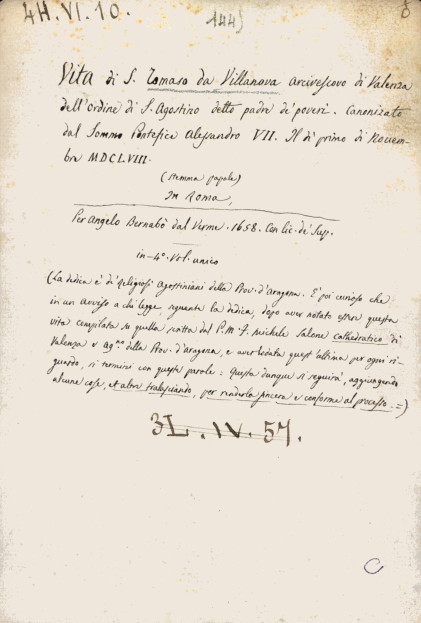 4H. VI. 10.
144
Vita di S. Tomaso da Villanova arcivescovo di Valenza
dell'ordine di S. Agostino detto padre de' poveri. Canonizato
dal Sommo Pontefice Alessandro VII. Il dì primo di Novem-
bre MDCLVIII.
(stemma papale)
In Roma,
Per Angelo Bernabò dal Verme. 1658. Con lic. de' Sup.
in-4°. Vol. unico
(La dedica è di Religiosi Agostiniani della Prov. d'Aragona. È poi curioso che
in un Avviso a chi legge, seguente la dedica, dopo aver notato essere questa
vita compilata su quella scritta dal P. M. F. Michele Salone Cathedratico di
Valenza e Ag.no della Prov. d'Aragona, e aver lodata quest'ultima per ogni ri-
guardo, si termini con queste parole = Questa dunque si seguirà, aggiungendo
alcune cose, et altre tralasciando, per renderla sincera e conforme al processo. =)
3L. IV. 57.
C